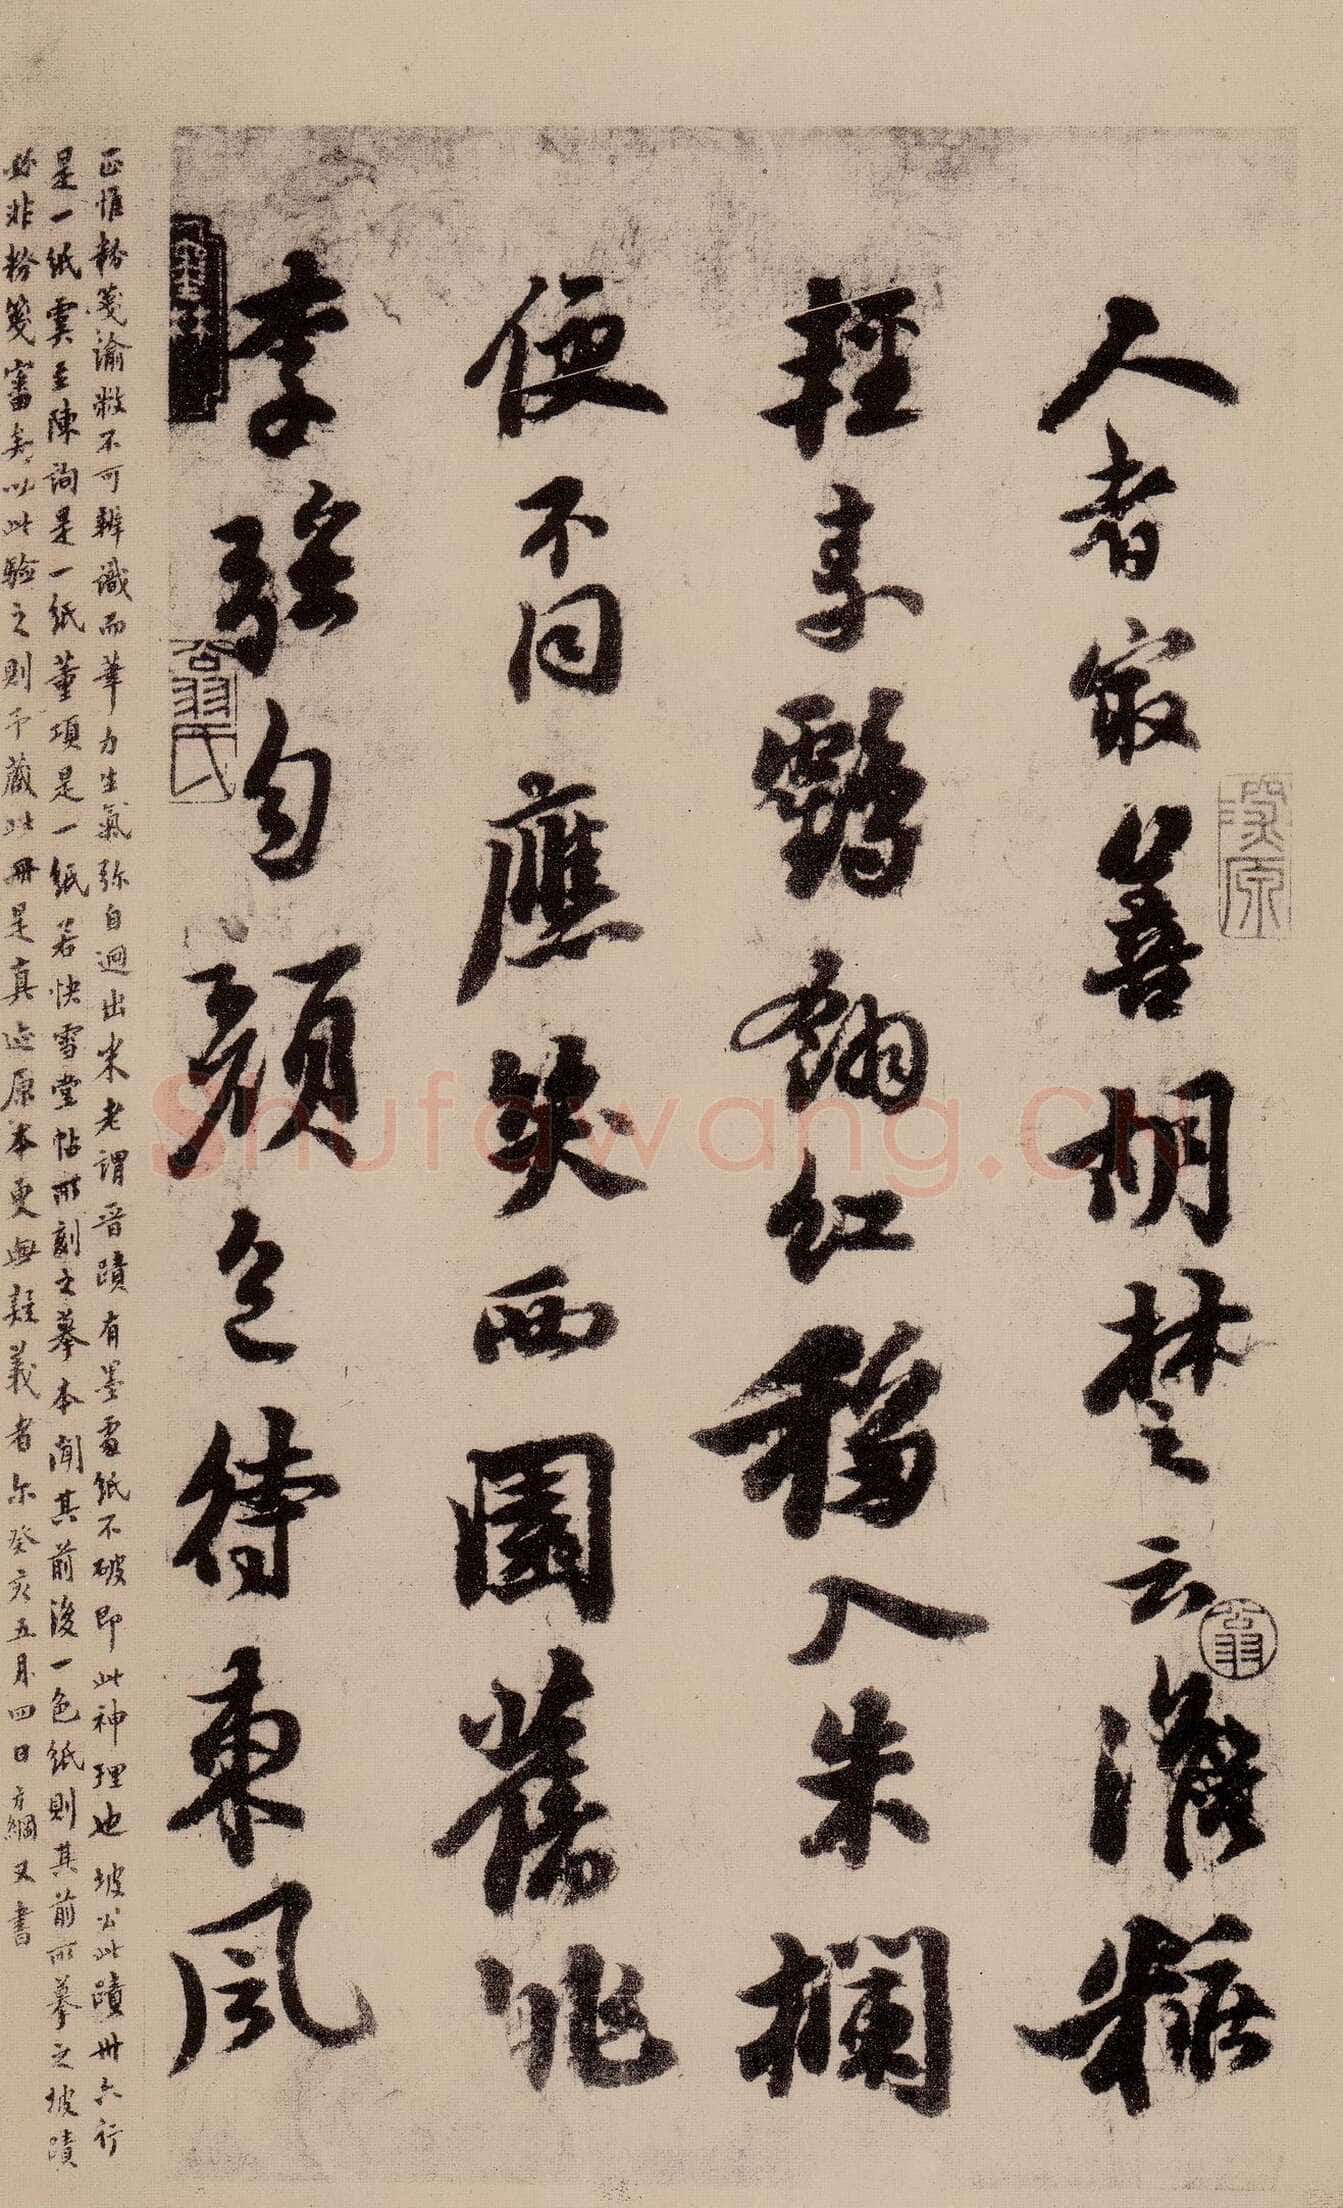 人者最善胡楚之云淡粧
輕素鶴翎紅移入朱欄
便不同應笑西園舊桃
李強勻顏色待東風
正惟粉箋渝敝不可辨識而筆力生氣弥自迥出米老謂晋蹟有墨處紙不破即此神理也坡公此蹟卅六行
是一紙虞至陳詢是一紙董項是一紙若快雪堂帖所刻之摹本聞其前後一色紙則其前所摹之坡蹟
必非粉箋審矣以此驗之則予藏此冊是真迹原本更無疑義者尔癸亥五月四日方綱又書
覃谿
翁氏
深原
翁
Shufawang.cn